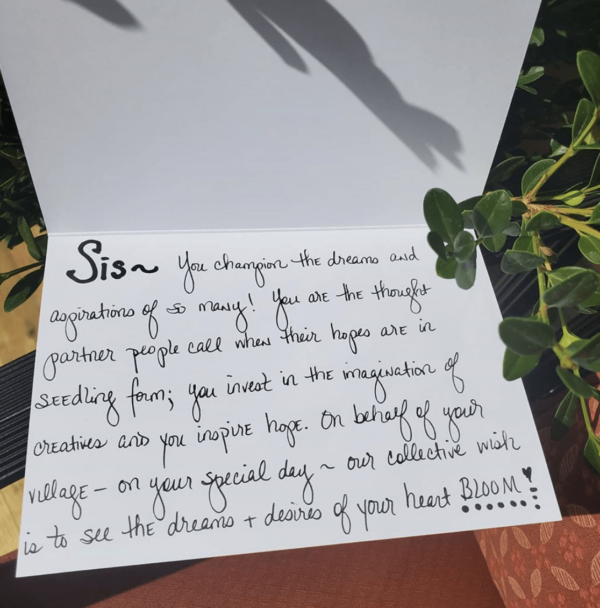 Sis~ You champion the dreams and
aspirations of so many! You are the thought
partner people call when their hopes are in
seedling form; you invest in the imagination of
creatives and you inspire hope. On behalf of your
village - on your special day ~ our collective wish
is to see the dreams + desires of your heart BLOOM!